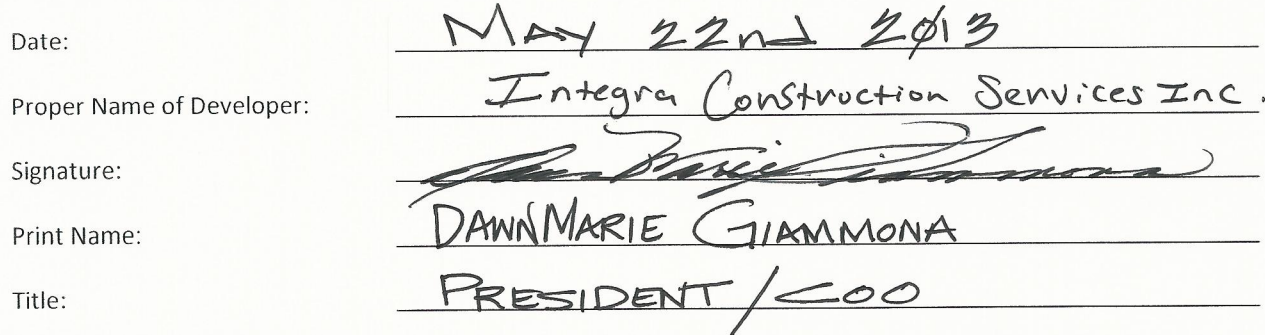 Date: May 22nd 2013
Proper Name of Developer: Integra Construction Services Inc.
Signature: DawnMarie Giammona
Print Name: DAWNMARIE GIAMMONA
Title: PRESIDENT/COO